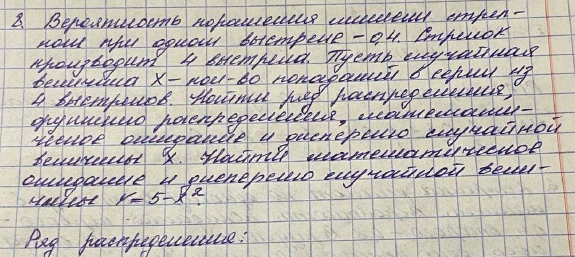 8. Вероятность поражения мишени стрел-
ком при одном выстреле – 0,4. Стрелок
производит 4 выстрела. Пусть случайная
величина X – кол-во попаданий в серии из
4 выстрелов. Найти ряд распределения,
функцию распределения, математи-
ческое ожидание и дисперсию случайной
величины X. Найти математическое
ожидание и дисперсию случайной вели-
чины Y = 5 – X².
Ряд распределения: